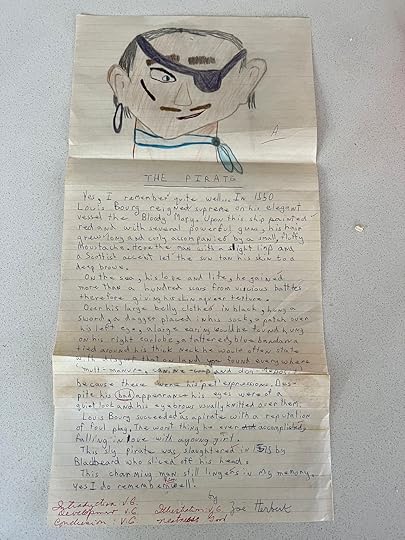 A
THE PIRATE
Yes, I remember quite well... In 1550
Louis Bourg reigned supreme on his elegant
vessel the Bloody Mary. Upon this ship painted
red and with several powerful guns, his hair
grew long and curly accompanied by a small, fluffy
moustache. Here the man with a slight limp and
a Scottish accent let the sun tan his skin to a
deep brown.
On the sea, his love and life, he gained
more than a hundred scars from viscious battles
therefore giving his skin a queer texture.
Over his large belly clothed in black, hung a
sword, a dagger placed in his sock, a patch over
his left eye, a large earing would be found hung
on his right earlobe, a tattered, blue bandanna
tied around his thick neck he would often state
with and you found everywhere
multi-manure, canine-crap and
because these were his pet expressions. Des-
pite his bad appearance his eyes were of a
quiet love and his eyebrows usually knitted over them.
Louis Bourg succeeded as a pirate with a reputation
of foul play. The worst thing he ever accomplished,
falling in love with a young girl.
This sly pirate was slaughtered in by
Blackbeard who sliced off his head.
This charming man still lingers in my memory,
yes I do remember well!
by
Zoe Herbert
Introduction V.G.
Development V.G. Illustration V.G.
Conclusion - V.G. neatness Good